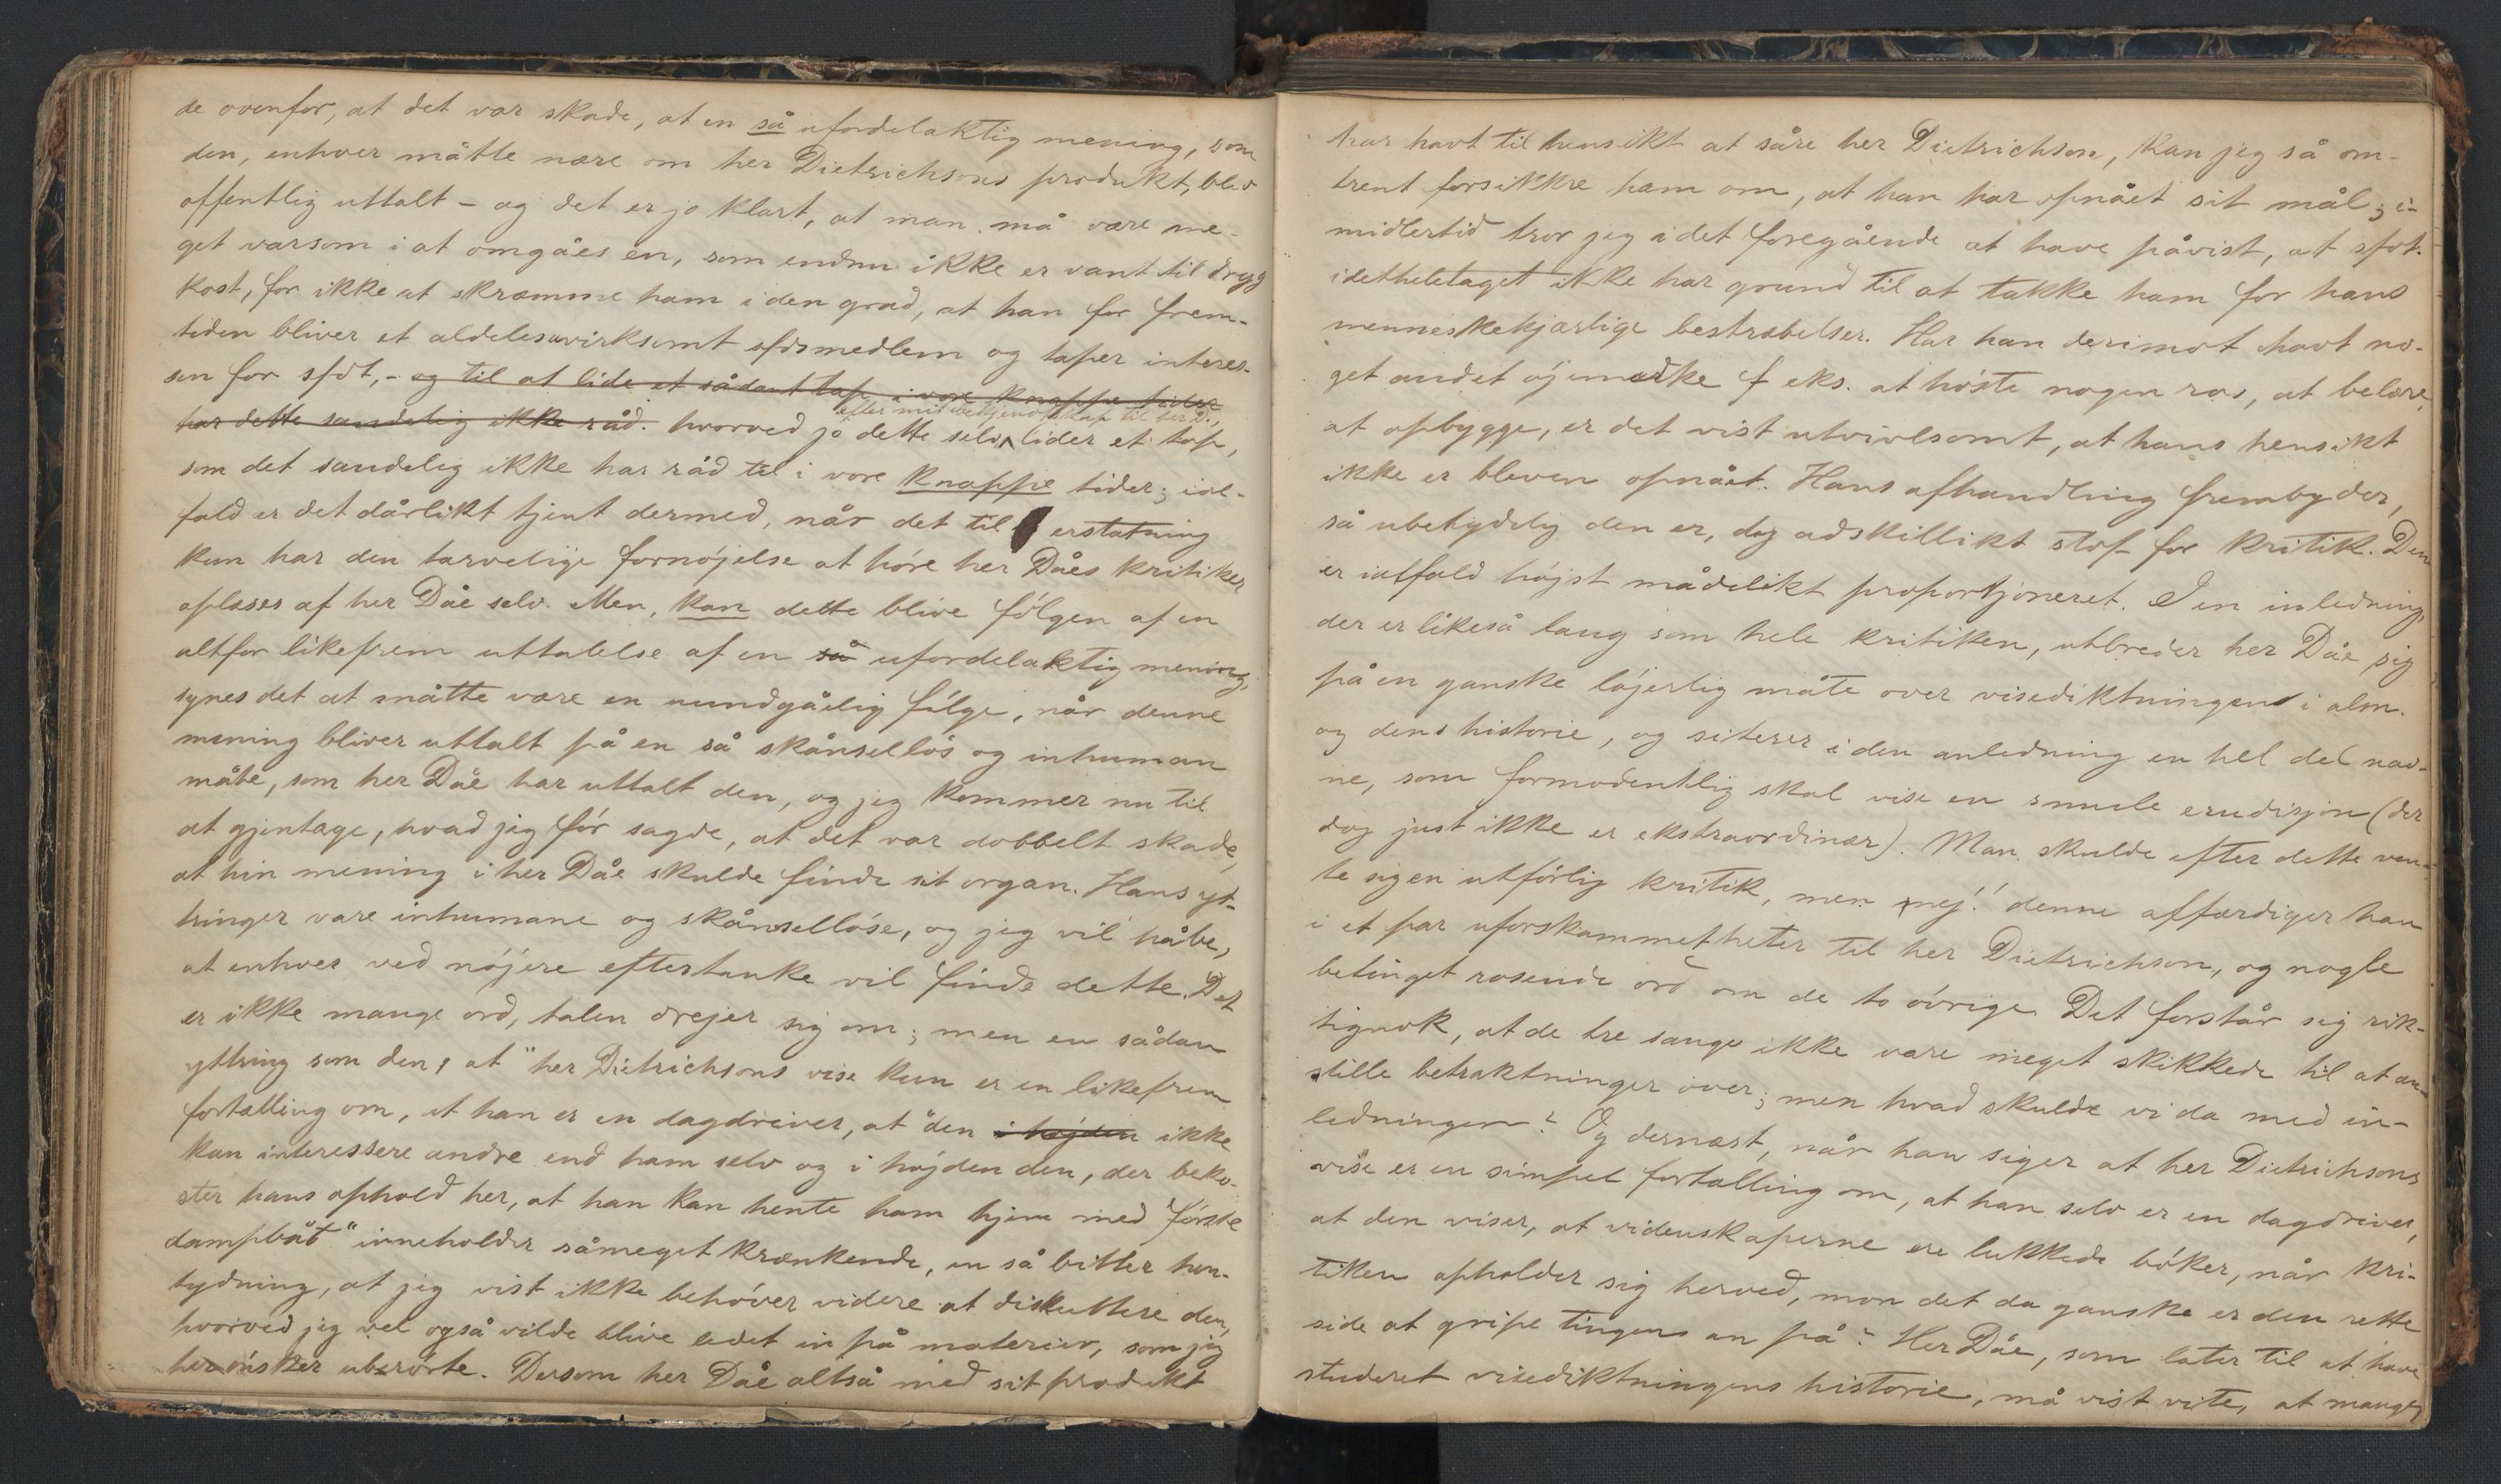 de ovenfor, at det var skade, at en så ufordelaktig mening, som
den, enhver måtte nære om her Dietrichsons produkt, blev
offentlig uttalt – og det er jo klart, at man må være me-
get varsom i at omgåes en, som endnu ikke er vant til drygg
kost, for ikke at skræmme ham i den grad, at han for frem-
tiden bliver et aldeles uvirksomt sfdsmedlem og taper interes-
sen for sfdt, – og til at lide et sådant tap i vore knappe tider
har dette sandelig ikke råd. hvorved jo dette selv, lider et tap,
efter mit bekjendtskap til her D.,
som det sandelig ikke har råd til i vore knappe tider; ial-
fald er det dårlikt tjent dermed, når det til erstatning
kun har den tarvelige fornøjelse at høre her Dåes kritiker
oplæses af her Dåe selv. Men, kan dette blive følgen af en
altfor likefrem uttalelse af en så ufordelaktig mening,
synes det at måtte være en uundgåelig følge, når denne
mening bliver uttalt på en så skånselløs og inhuman
måte, som her Dåe har uttalt den, og jeg kommer nu til
at gjentage, hvad jeg før sagde, at det var dobbelt skade,
at hin mening i her Dåe skulde finde sit organ. Hans yt-
tringer vare inhumane og skånselløse, og jeg vil håbe,
at enhver ved nøjere eftertanke vil finde dette. Det
er ikke mange ord, talen drejer sig om; men en sådan
yttring som den, at "her Dietrichsons vise kun er en likefrem
fortælling om, at han er en dagdriver, at "den i højden ikke
kan interessere andre end ham selv og i højden den, der beko-
ster hans ophold her, at han kan hente ham hjem med første
dampbåt" inneholder såmeget krænkende, en så bitter hen-
tydning, at jeg vist ikke behøver videre at diskuttere den,
hvorved jeg vel også vilde blive ledet in på materier, som jeg
her ønsker uberørte. Dersom her Dåe altså med sit produkt
har havt til hensikt at såre her Dietrichson, kan jeg så om-
trent forsikkre ham om, at han har opnået sit mål; i-
midlertid tror jeg i det foregående at have påvist, at sfdt.
idetheletaget ikke har grund til at takke ham for hans
menneskekjærlige bestræbelser. Har han derimot havt no-
get andet øjemærke f eks. at høste nogen ros, at belære,
at opbygge, er det vist utvivlsomt, at hans hensikt
ikke er bleven opnået. Hans afhandling frembyder,
så ubetydelig den er, dog adskillikt stof for kritik. Den
er ialfald højst mådelikt proportjoneret. I en inledning,
der er likeså lang som hele kritiken, utbreder her Dåe sig
på en ganske løjerlig måte over visediktningen i alm.
og dens historie, og siterer i den anledning en hel del nav-
ne, som formodentlig skal vise en smule erudisjon (der
dog just ikke er ekstraordinær). Man skulde efter dette ven-
te sig en utførlig kritik, men nej! denne affærdiger han
i et par uforskammetheter til her Dietrichson, og nogle
betinget rosende ord om de to øvrige. Det forstår sig rik-
tignok, at de tre sange ikke vare meget skikkede til at an-
stille betraktninger over; men hvad skulde vi da med in-
ledningen? Og dernæst, når han siger at her Dietrichsons
vise er en simpel fortælling om, at han selv er en dagdriver,
at den viser, at videnskaperne ere lukkede bøker, når kri-
tiken opholder sig herved, mon det da ganske er den rette
side at gripe tingen an på? Her Dåe, som later til at have
studeret visediktningens historie, må vist vite, at mange